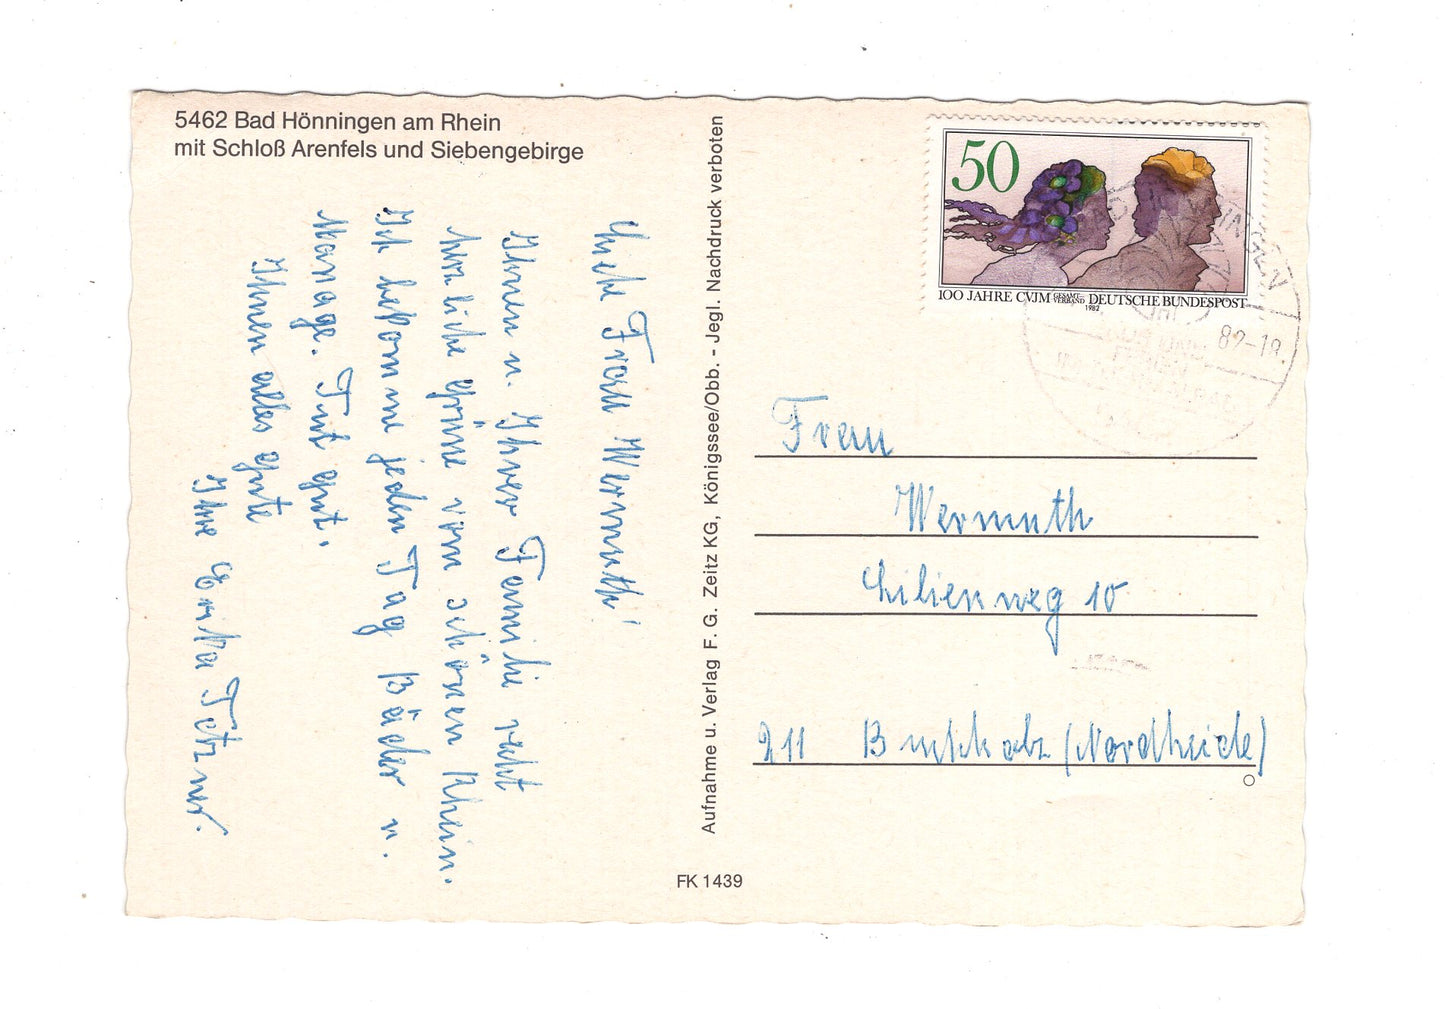 5462 Bad Hönningen am Rhein
mit Schloß Arenfels und Siebengebirge
Liebe Frau Wermuth,
Ihnen u. Ihrer Familie recht
herzliche Grüße vom schönen Rhein.
Ich bekomme jeden Tag Bäder u.
Massage. Tut gut.
Ihnen alles gute
Ihre Erika Tetzner.
Aufnahme u. Verlag F. G. Zeitz KG, Königssee/Obb. - Jegl. Nachdruck verboten
FK 1439
50
100 JAHRE CVJM GESAMT-VERBAND DEUTSCHE BUNDESPOST
1982
82-18
Frau
Wermuth
Lilienweg 10
211 Buchholz (Nordheide)